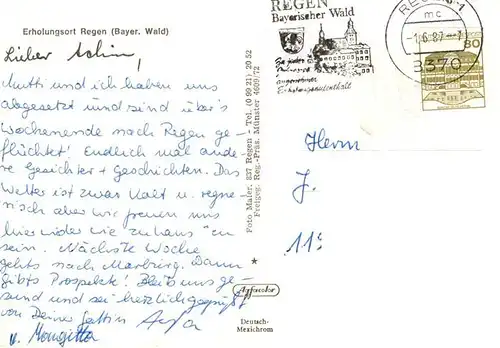 Erholungsort Regen (Bayer. Wald)
Lieber Achim,
Mutti und ich haben uns
abgesetzt und sind über's
Wochenende nach Regen ge-
flüchtet! Endlich mal ande-
re Gesichter + Geschichten. Das
Wetter ist zwar kalt u. regne-
risch aber wir freuen uns
hier wieder wie zu haus" zu
sein. Nächste Woche
gehts nach Marburg. Dann
gibts Prospekte! Bleib uns ge-
sund und sei herzlich gegrüßt
von Deiner Gattin
u.
Foto Maler, 837 Regen - Tel. (0 99 21) 20 52
Freigeg. Reg.-Präs. Münster 4609/72
Agfacolor
Deutsch-
Mexichrom
REGEN
Bayerischer Wald
Zu jeder
Jahreszeit
angenehmer
Erholungsaufenthalt
REGEN 1
mc
-1.6.87.-7
8370
80
Herrn
J.
11